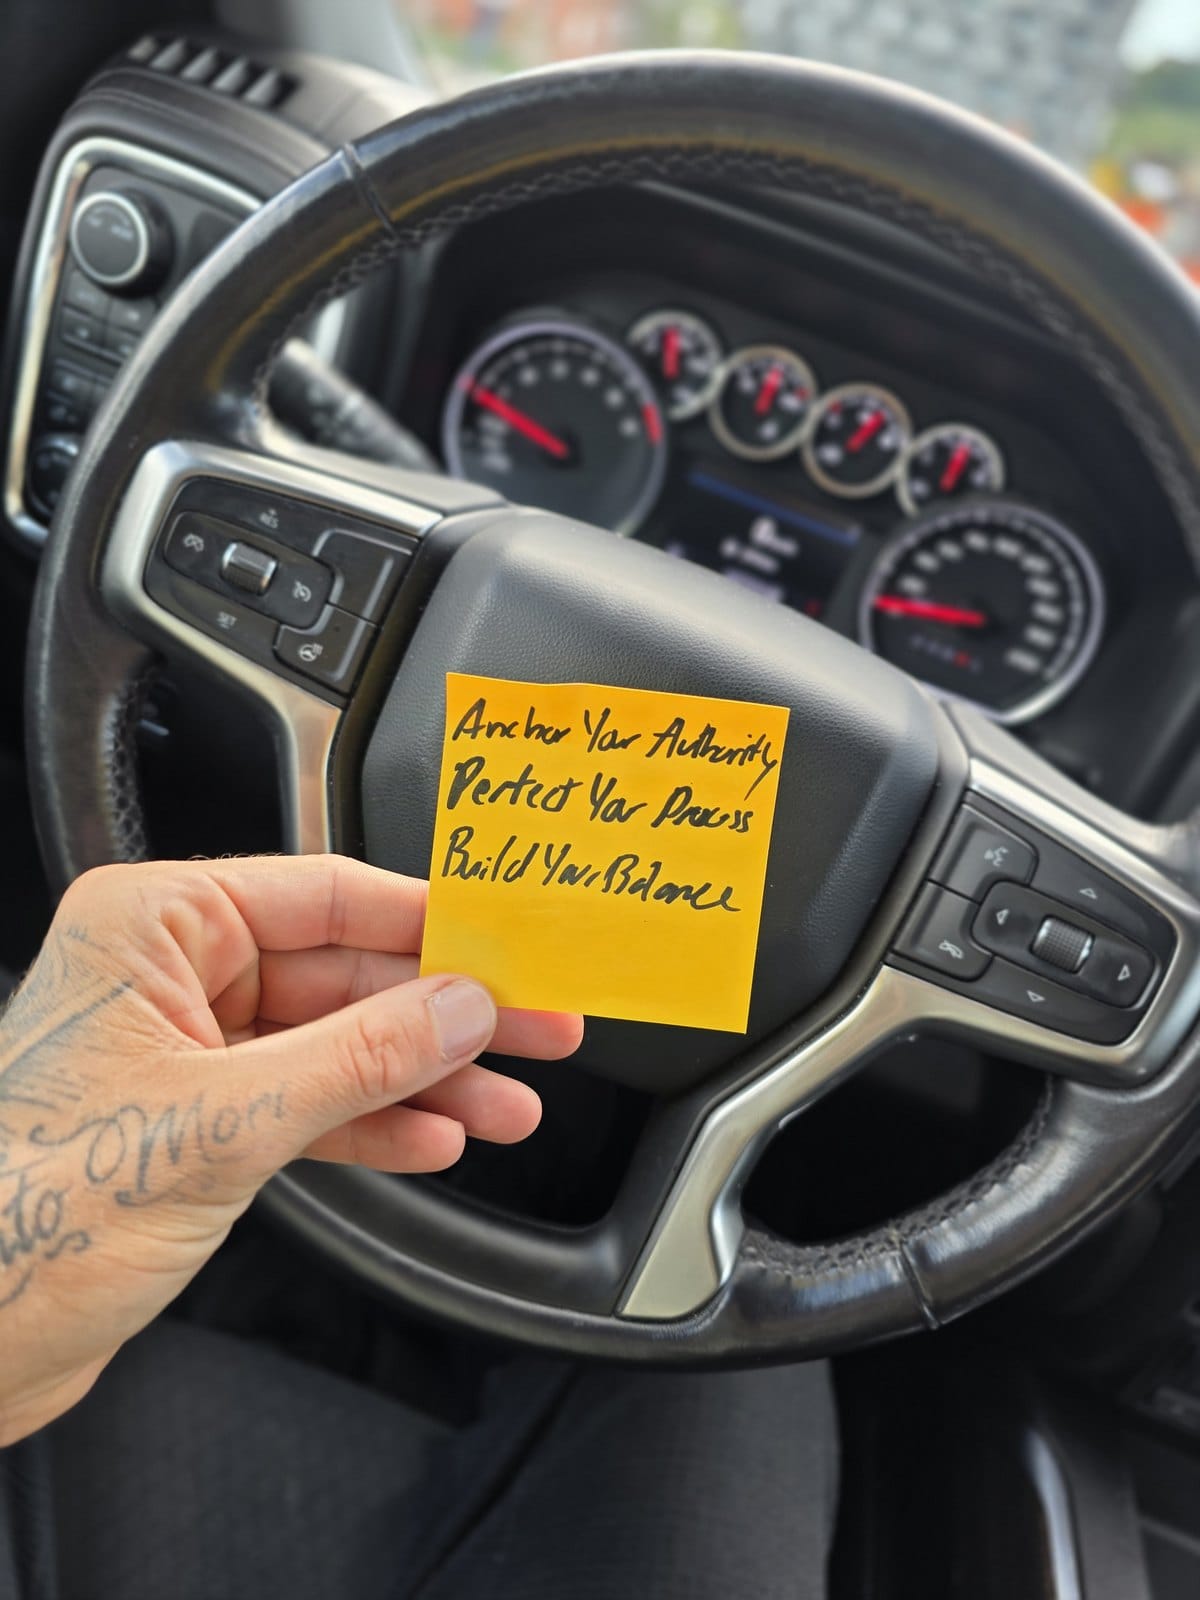 RES
SET
Anchor Your Authority
Perfect Your Process
Build Your Balance
Mori